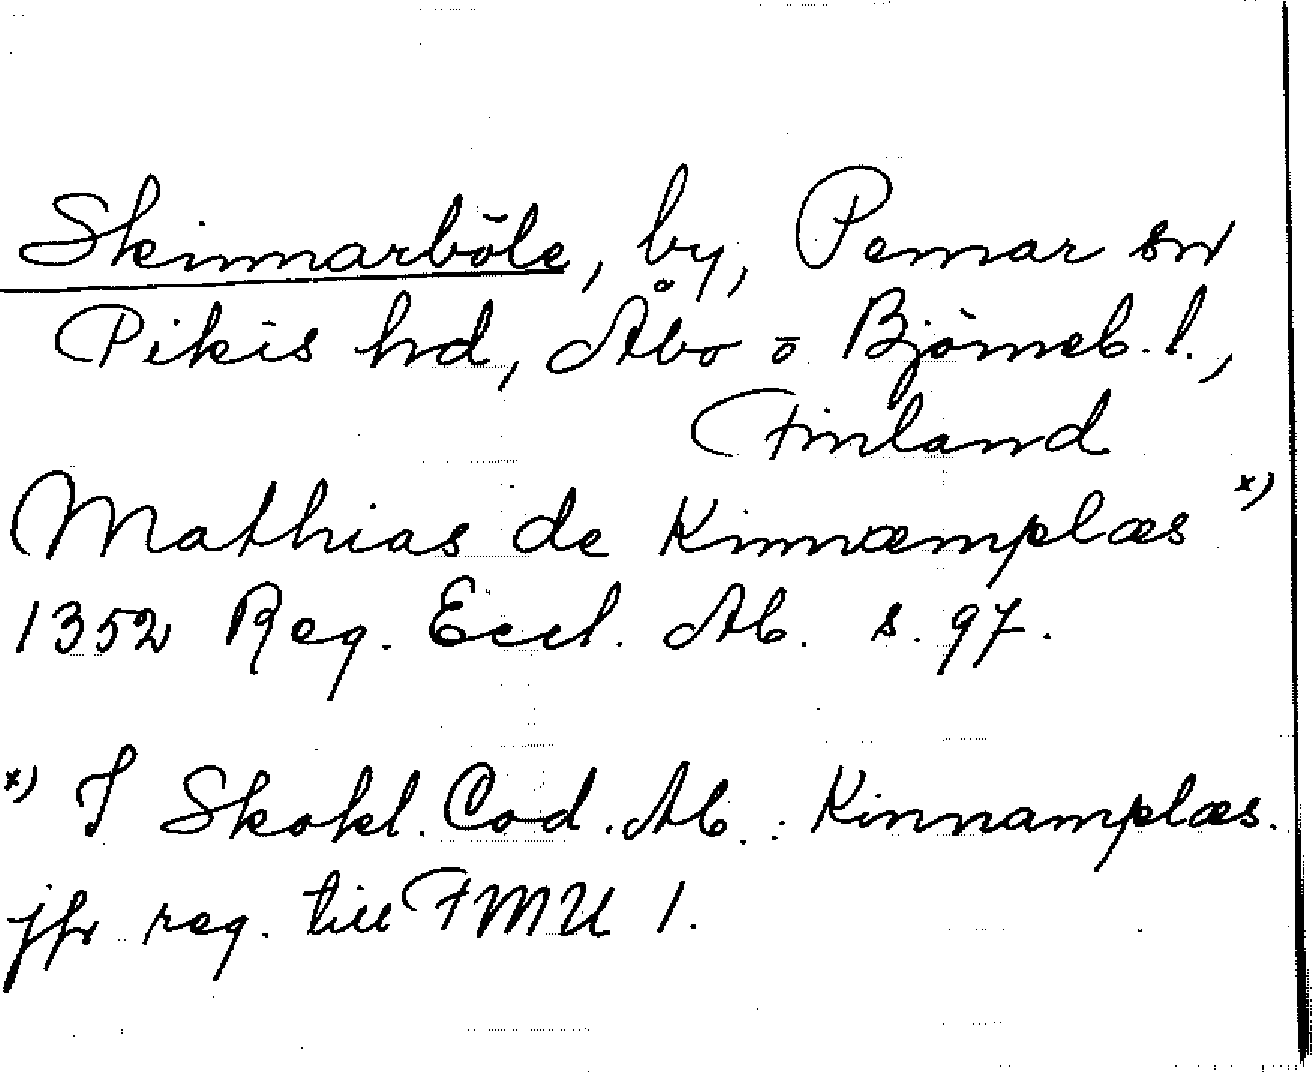 Skinnarböle, by, Pemar sn
Pikis hd, Åbo o Björneb. l.,
Finland
Mathias de Kinnæmplæs x)
1352 Reg. Eccl. Ab. s. 97.
x) I Skokl. Cod. Ab.: Kinnamplæs.
jfr reg. till FMU 1.